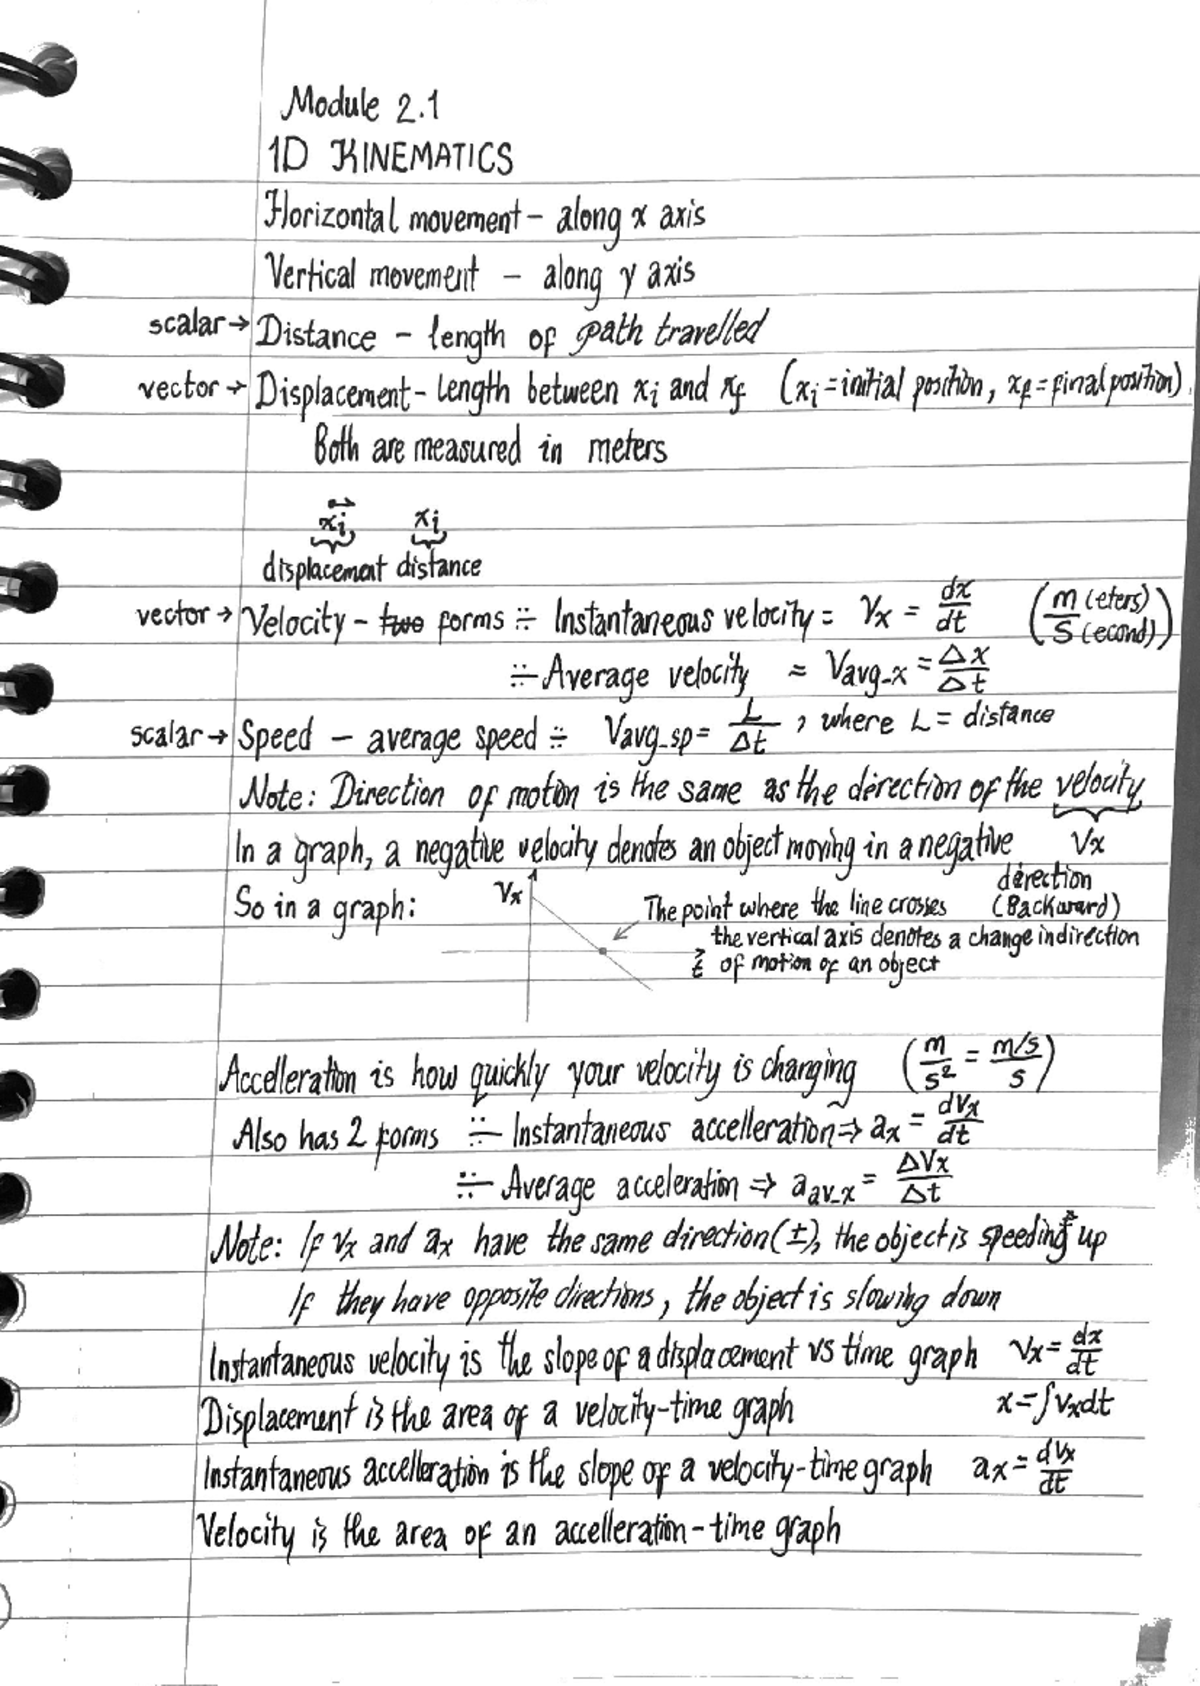 Module 2.1
1D KINEMATICS
Horizontal movement – along x axis
Vertical movement – along y axis
scalar → Distance – length of path travelled
vector → Displacement – Length between xi and xf (xi = initial position, xf = final position)
Both are measured in meters
xi xi
displacement distance
vector → Velocity – two forms ÷ Instantaneous velocity = Vx = dx/dt (m(eters)/s(econd))
÷ Average velocity = Vavg-x = Δx/Δt
scalar → Speed – average speed ÷ Vavg-sp = L/Δt , where L = distance
Note: Direction of motion is the same as the direction of the velocity
In a graph, a negative velocity denotes an object moving in a negative Vx
direction
So in a graph: Vx The point where the line crosses (Backward)
the vertical axis denotes a change in direction
t of motion of an object
Accelleration is how quickly your velocity is changing (m/s² = m/s/s)
Also has 2 forms ÷ Instantaneous accelleration ⇒ ax = dVx/dt
÷ Average acceleration ⇒ aav-x = ΔVx/Δt
Note: If Vx and ax have the same direction (±), the object is speeding up
If they have opposite directions, the object is slowing down
Instantaneous velocity is the slope of a displacement vs time graph Vx = dx/dt
Displacement is the area of a velocity-time graph x = ∫Vxdt
Instantaneous accelleration is the slope of a velocity-time graph ax = dVx/dt
Velocity is the area of an accelleration-time graph